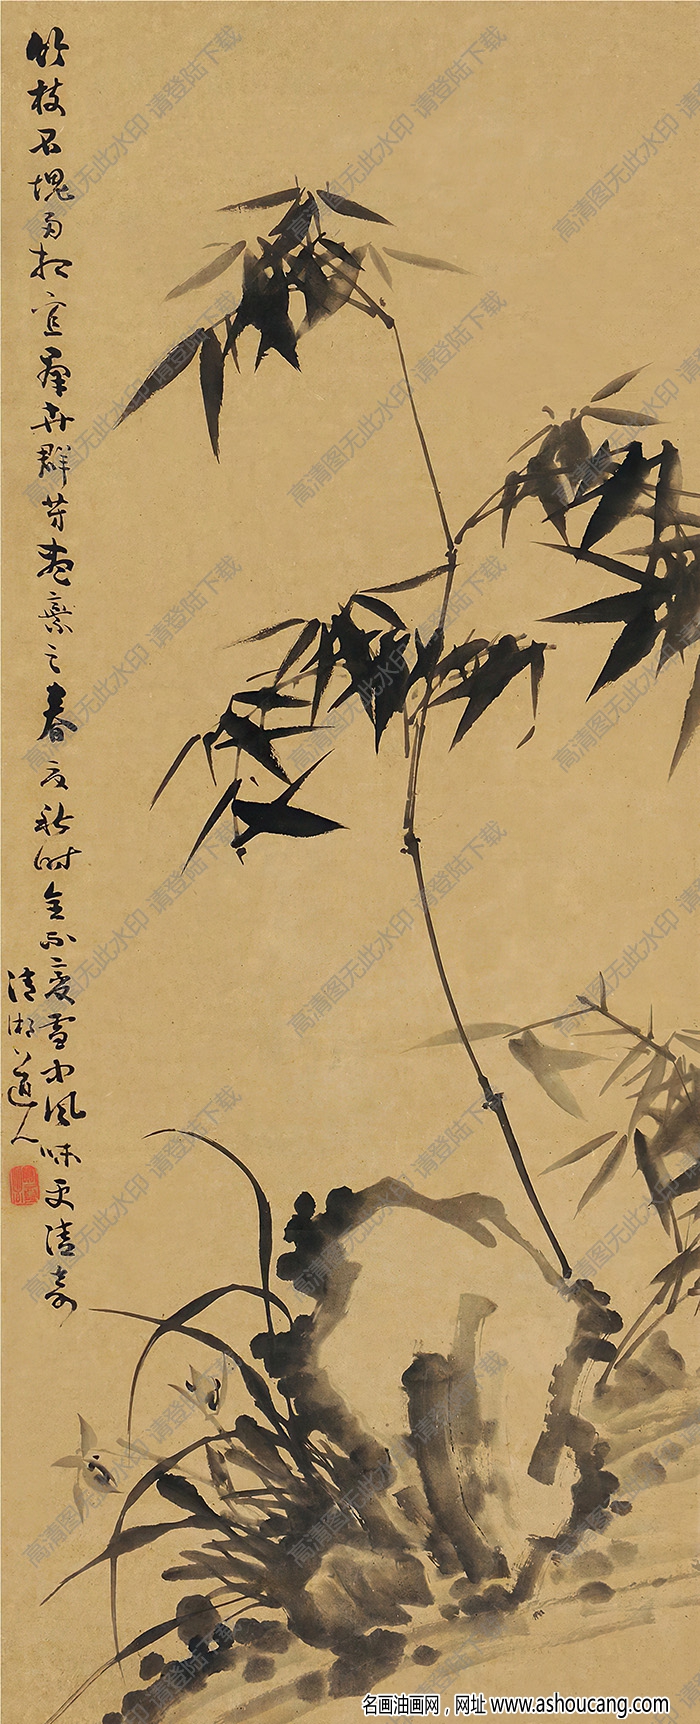 竹枝石塊兩相宜羣卉群芳盡棄之春夏秋時全不變雪中風味更清奇
清湘道人
高清图无此水印
请登陆下载
名画油画网，网址 www.ashoucang.com